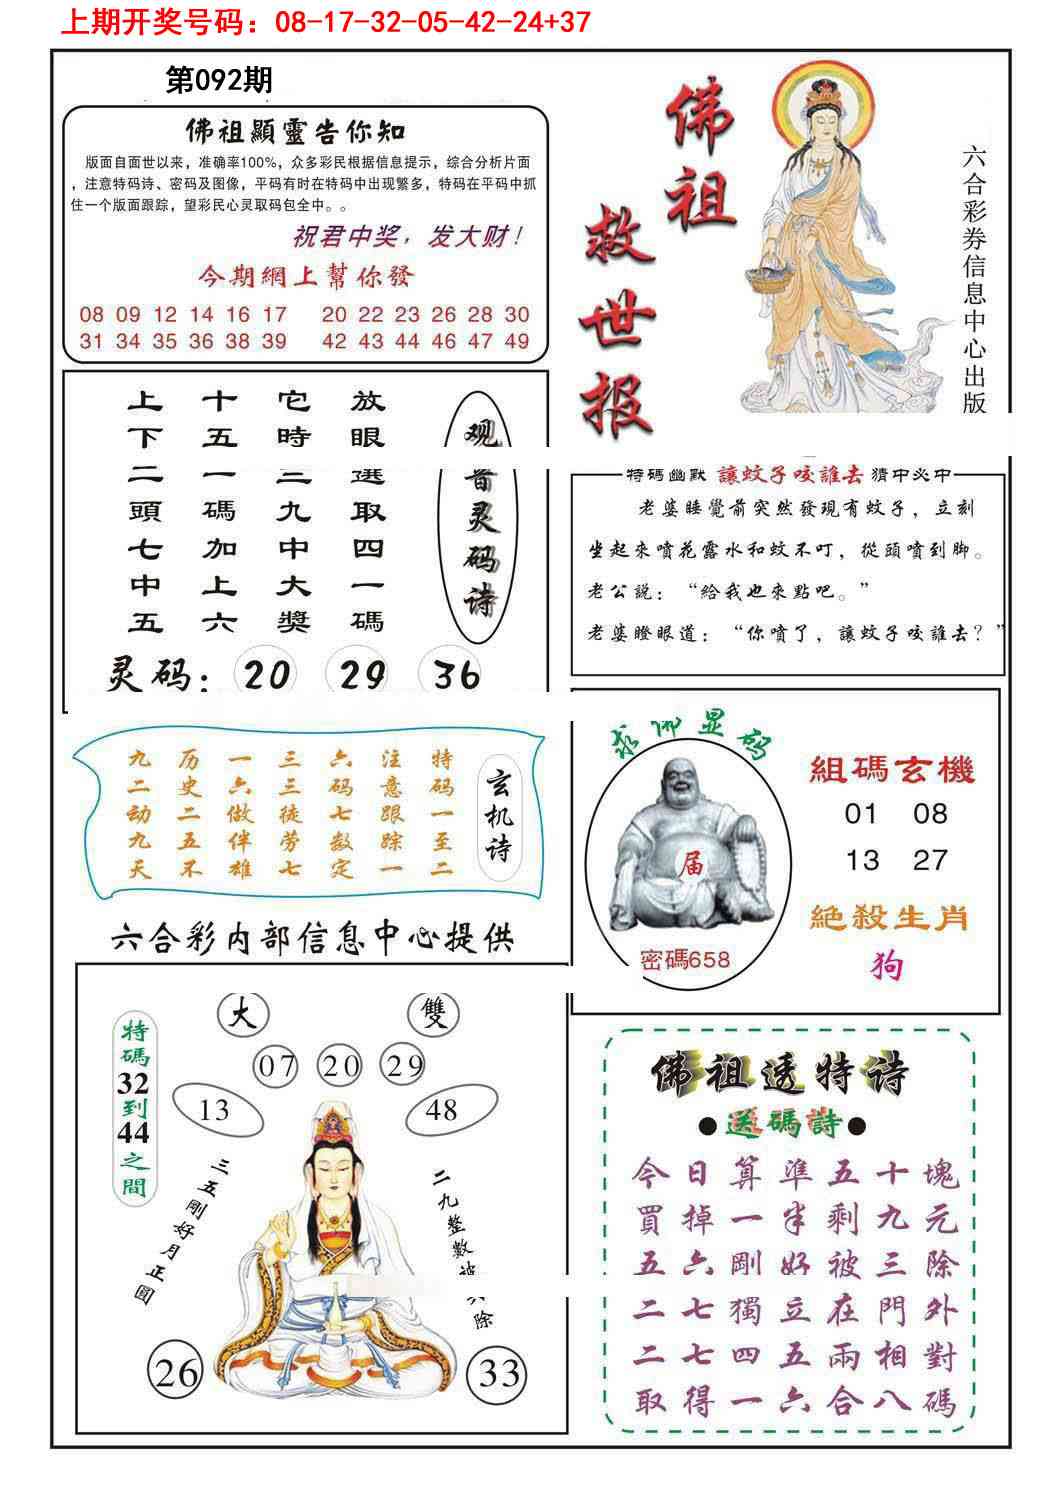 上期开奖号码：08-17-32-05-42-24+37
第092期
佛祖顯靈告你知
版面自面世以来，准确率100%，众多彩民根据信息提示，综合分析片面
，注意特码诗、密码及图像，平码有时在特码中出现繁多，特码在平码中抓
住一个版面跟踪，望彩民心灵取码包全中。。
祝君中奖，发大财！
今期網上幫你發
08 09 12 14 16 17 20 22 23 26 28 30
31 34 35 36 38 39 42 43 44 46 47 49
佛祖
救世报
六合彩券信息中心出版
观音灵码诗
放眼選取四一碼
它時三九中大獎
十五一碼加上六
上下二頭七中五
灵码：20 29 36
特碼幽默 讓蚊子咬誰去 猜中必中
老婆睡覺前突然發現有蚊子，立刻
坐起來噴花露水和蚊不叮，從頭噴到脚。
老公説：“給我也來點吧。”
老婆瞪眼道：“你噴了，讓蚊子咬誰去？”
玄机诗
特码一至二
注意跟踪一
六码七数定
三三徒劳七
一六做伴雄
历史二五不
九二动九天
六合彩内部信息中心提供
求佛显码
届
密碼658
組碼玄機
01 08
13 27
絕殺生肖
狗
大 雙
07 20 29
13 48
特碼32到44之間
三五剛好月正圓
二九整數被 除
26 33
佛祖透特诗
●送碼詩●
今日算準五十塊
買掉一半剩九元
五六剛好被三除
二七獨立在門外
二七四五兩相對
取得一六合八碼